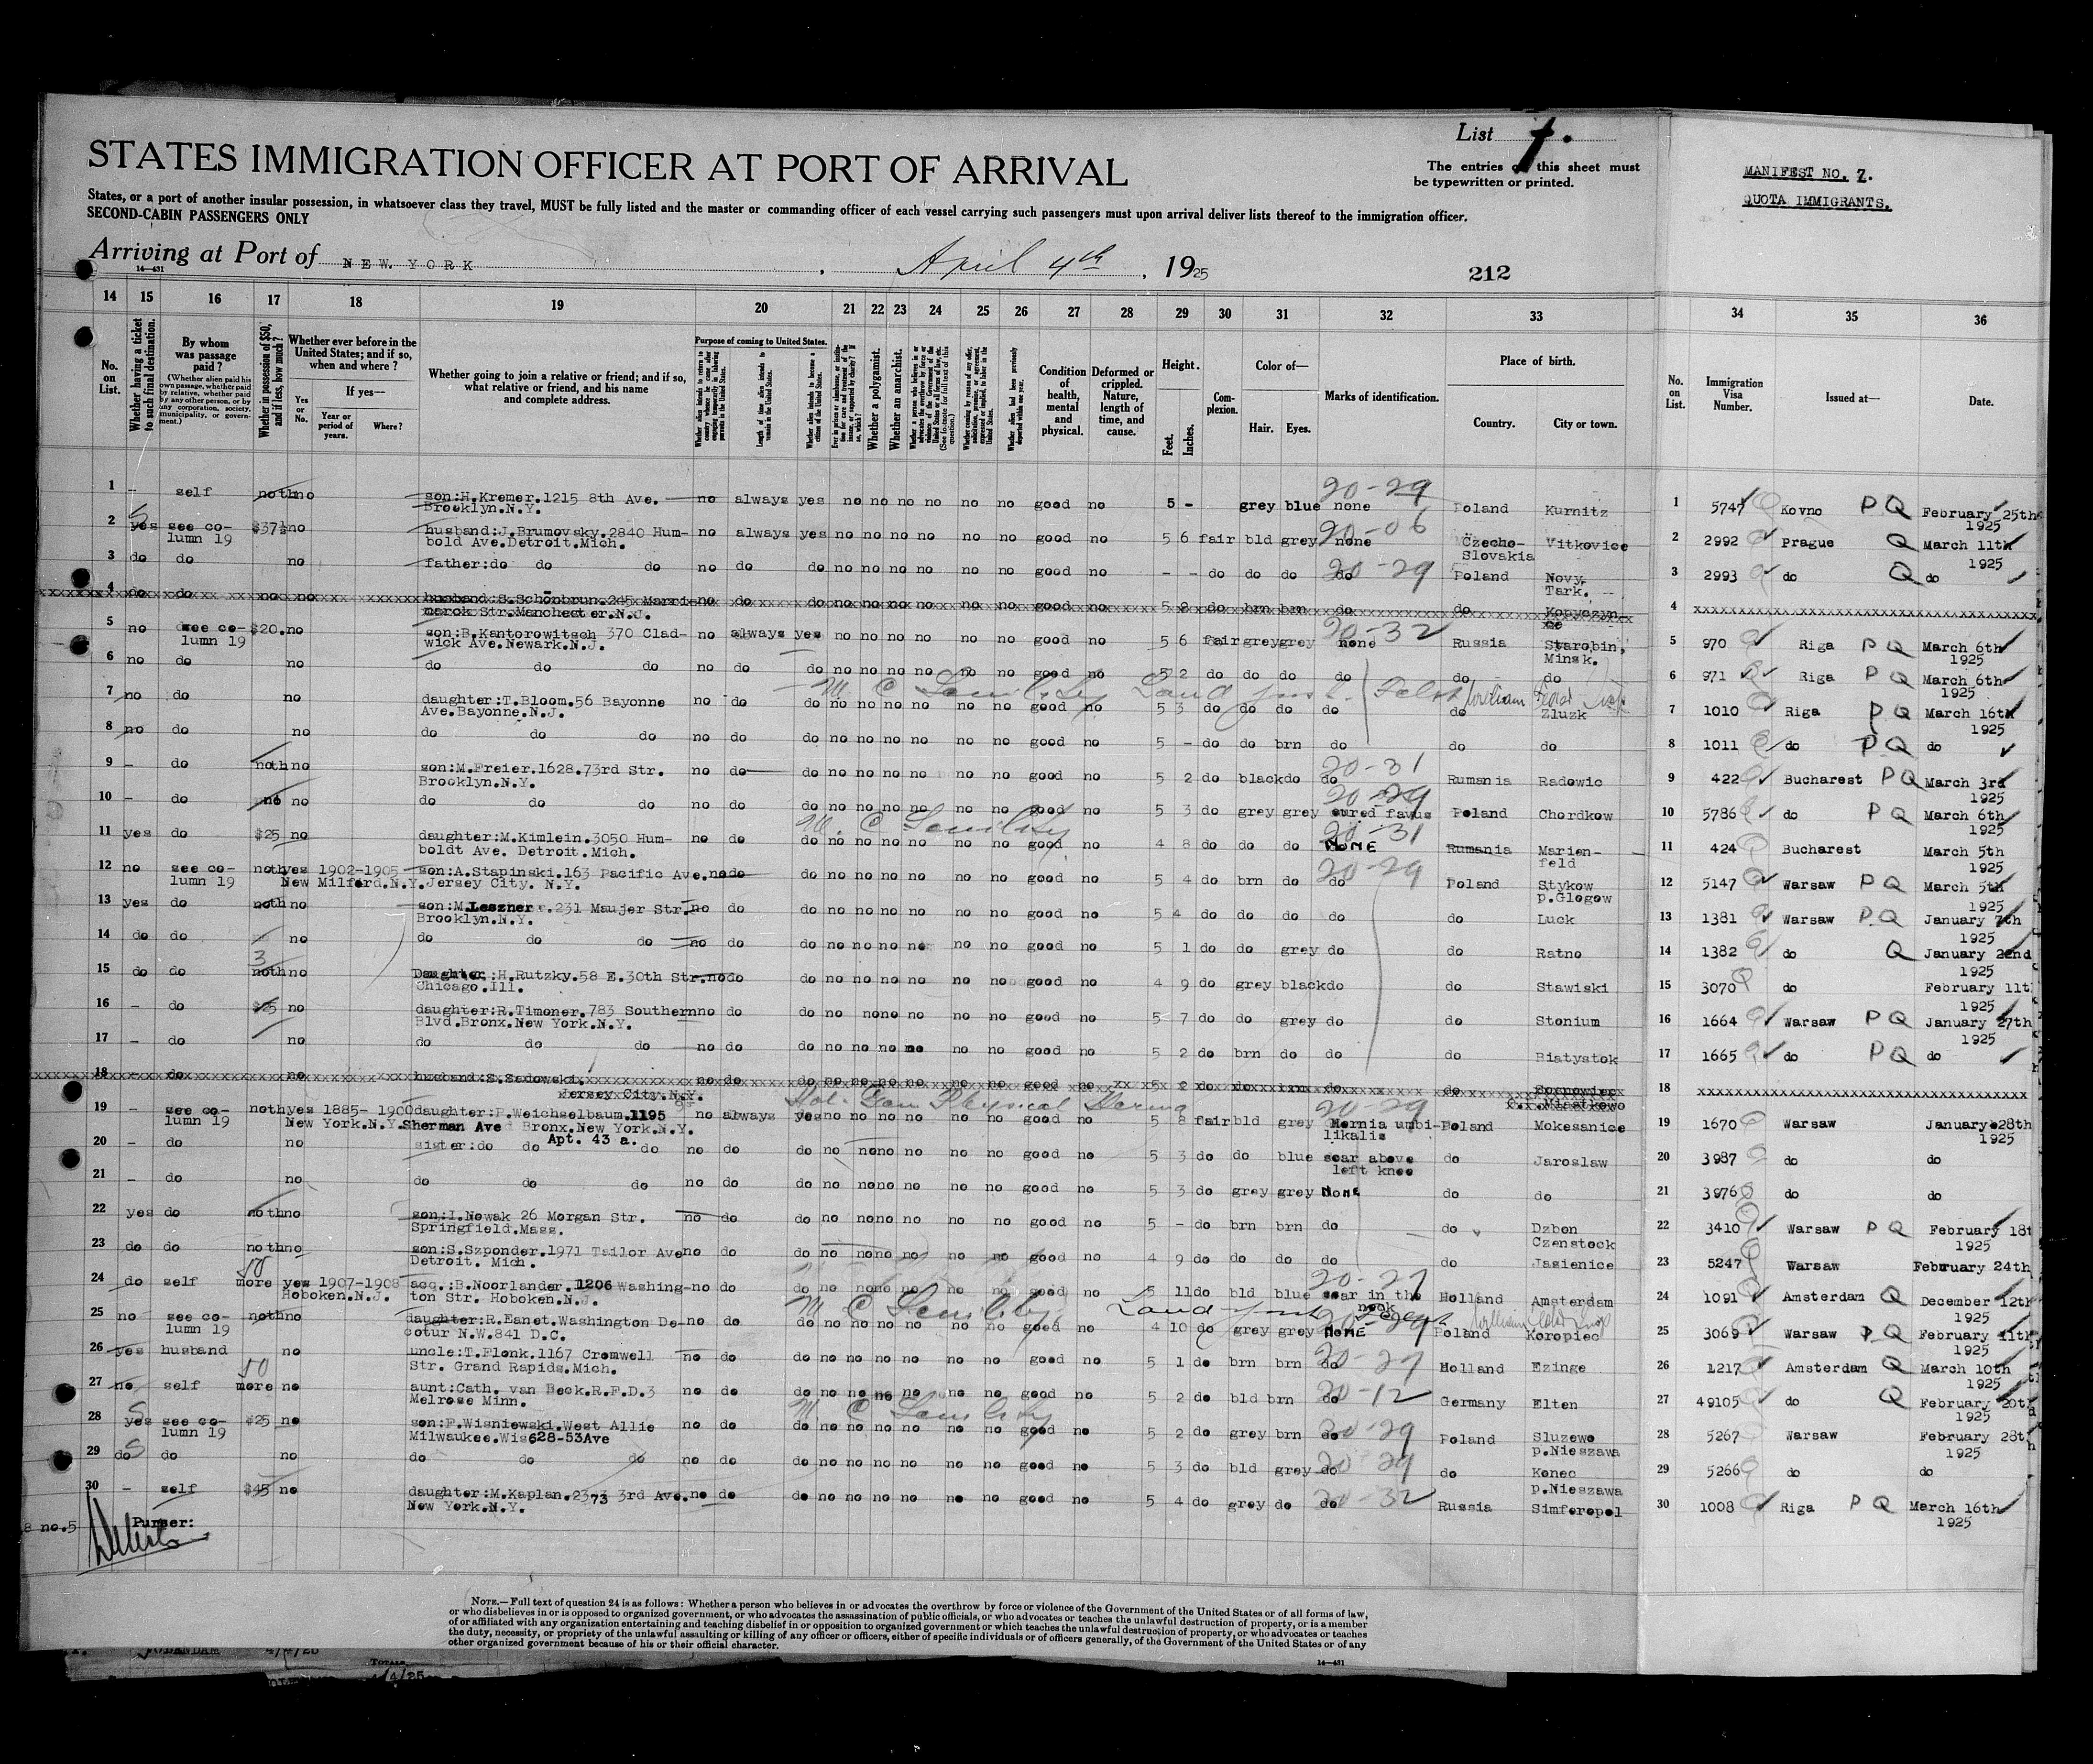 List
STATES IMMIGRATION OFFICER AT PORT OF ARRIVAL
The entries on this sheet must
be typewritten or printed.
States, or a port of another insular possession, in whatsoever class they travel, MUST be fully listed and the master or commanding officer of each vessel carrying such passengers must upon arrival deliver lists thereof to the immigration officer.
SECOND-CABIN PASSENGERS ONLY
MANIFEST NO. 7.
QUOTA IMMIGRANTS.
Arriving at Port of NEW YORK, April 4th, 1925
14—431
212
14 15 16 17 18 19 20 21 22 23 24 25 26 27 28 29 30 31 32 33 34 35 36
No. on List.
Whether having a ticket to such final destination.
By whom was passage paid?
(Whether alien paid his own passage, whether paid by relative, whether paid by any other person, or by any corporation, society, municipality, or government.)
Whether in possession of $50, and if less, how much?
Whether ever before in the United States; and if so, when and where?
Yes or No.
If yes—
Year or period of years.
Where?
Whether going to join a relative or friend; and if so, what relative or friend, and his name and complete address.
Purpose of coming to United States.
Length of time alien intends to remain in the United States.
Whether alien intends to become a citizen of the United States.
Whether a polygamist.
Whether an anarchist.
Condition of health, mental and physical.
Deformed or crippled. Nature, length of time, and cause.
Height.
Feet. Inches.
Complexion.
Color of—
Hair. Eyes.
Marks of identification.
Place of birth.
Country. City or town.
No. on List.
Immigration Visa Number.
Issued at—
Date.
1 – self noth no son:H.Kremer.1215 8th Ave. no always yes no no no no no no good no 5 - grey blue none Poland Kurnitz 1 5747 Kovno P Q February 25th
Brooklyn.N.Y. 20-29 1925
2 yes see co- $37½ no husband:J.Brumovsky.2840 Hum- no always yes no no no no no no good no 5 6 fair bld grey none Czecho- Vitkovice 2 2992 Prague Q March 11th
lumn 19 bold Ave.Detroit.Mich. 20-06 Slovakia 1925
3 do do no father:do do do no do do no no no no no no good no - - do do do do Poland Novy. 3 2993 do Q do
20-29 Tark.
4 do do no no husband:S.Schönbrun.245 Marri- no do do no no no no no no good no 5 2 do brn brn do do 4
marck Str.Manchester.N.J.
5 no see co- $20. no son:B.Kantorowitsch 370 Clad- no always yes no no no no no no good no 5 6 fair grey grey none Russia Starobin, 5 970 Riga P Q March 6th
lumn 19 wick Ave.Newark.N.J. 20-32 Minsk. 1925
6 no do no do do do no do do no no no no no no good no 5 2 do do do do do do 6 971 Riga P Q March 6th
1925
7 no do no daughter:T.Bloom.56 Bayonne no do do no no no no no no good no 5 3 do do do do do Zluzk 7 1010 Riga P Q March 16th
Ave.Bayonne.N.J. 1925
8 no do no do do do no do do no no no no no no good no 5 - do do brn do do do 8 1011 do P Q do
9 – do noth no son:M.Freier.1628.73rd Str. no do do no no no no no no good no 5 2 do black do do Rumania Radowic 9 422 Bucharest P Q March 3rd
Brooklyn.N.Y. 20-31 1925
10 – do no no do do do no do do no no no no no no good no 5 3 do grey grey cured favus Poland Chordkow 10 5786 do P Q March 6th
20-29 1925
11 yes do $25 no daughter:M.Kimlein.3050 Hum- no do do no no no no no no good no 4 8 do do do NONE Rumania Marien- 11 424 Bucharest March 5th
boldt Ave. Detroit.Mich. 20-31 feld 1925
12 no see co- noth yes 1902-1905 son:A.Stapinski.163 Pacific Ave. no do do no no no no no no good no 5 4 do brn do do Poland Stykow 12 5147 Warsaw P Q March 5th
lumn 19 New Milford.N.Y. Jersey City. N.Y. 20-29 p.Glogow 1925
13 yes do noth no son:M.Leszner.231 Maujer Str. no do do no no no no no no good no 5 4 do do do do do Luck 13 1381 Warsaw P Q January 7th
Brooklyn.N.Y. 1925
14 do do no do do do no do do no no no no no no good no 5 1 do do grey do do Ratno 14 1382 do Q January 22nd
1925
15 do do noth no Daughter:H.Rutzky.58 E.30th Str. no do do no no no no no no good no 4 9 do grey black do do Stawiski 15 3070 do February 11th
Chicago.Ill. 1925
16 – do $25 no daughter:R.Timoner.783 Southern no do do no no no no no no good no 5 7 do do grey do do Stonium 16 1664 Warsaw P Q January 27th
Blvd.Bronx.New York.N.Y. 1925
17 – do no do do do no do do no no no no no no good no 5 2 do brn do do do Biatystok 17 1665 do P Q do
18 – do no husband:S.Sadowski. no do do no no no no no no good no 5 2 do do do do 18
Jersey City.N.Y.
19 – see co- noth yes 1885-1900 daughter:P.Weichselbaum.1195 no always yes no no no no no no good no 5 8 fair bld grey Hernia umbi- Poland Mokesanice 19 1670 Warsaw January 28th
lumn 19 New York.N.Y. Sherman Ave Bronx.New York.N.Y. 20-29 likalis 1925
Apt. 43 a.
20 – do no sister:do do do no do do no no no no no no good no 5 3 do do blue scar above do Jaroslaw 20 3987 do do
left knee
21 – do no do do do no do do no no no no no no good no 5 3 do grey grey NONE do do 21 3976 do do
22 yes do noth no son:I.Nowak 26 Morgan Str. no do do no no no no no no good no 5 - do brn brn do do Dzbon 22 3410 Warsaw P Q February 18t
Springfield.Mass. Czenstock 1925
23 do do noth no son:S.Szponder.1971 Tailor Ave no do do no no no no no no good no 4 9 do do do do do Jasienice 23 5247 Warsaw February 24th
Detroit. Mich.
24 do self 50 more yes 1907-1908 acq.:B.Noorlander.1206 Washing- no do do no no no no no no good no 5 11 do bld blue scar in the Holland Amsterdam 24 1091 Amsterdam Q December 12th
Hoboken.N.J. ton Str. Hoboken.N.J. 20-27 neck 1925
25 no see co- noth no daughter:R.Eanet.Washington De- no do do no no no no no no good no 4 10 do grey grey NONE Poland Koropiec 25 3069 Warsaw P Q February 11th
lumn 19 cotur N.W.841 D.C. 20-29 1925
26 yes husband no uncle:T.Flonk.1167 Cromwell no do do no no no no no no good no 5 1 do brn brn do Holland Ezinge 26 1217 Amsterdam Q March 10th
Str. Grand Rapids.Mich. 20-27 1925
27 no self 50 more no aunt:Cath. van Beck.R.F.D.3 no do do no no no no no no good no 5 2 do bld brn do Germany Elten 27 49105 do Q February 20th
Melrose Minn. 20-12 1925
28 yes see co- $25 no son:P.Wisniewski.West Allie no do do no no no no no no good no 5 2 do grey brn do Poland Sluzewo 28 5267 Warsaw February 28t
lumn 19 Milwaukee.Wis 628-53Ave 20-29 p.Nieszawa 1925
29 do do no do do do no do do no no no no no no good no 5 3 do bld grey do do Konec 29 5266 do do
20-29 p.Nieszawa
30 – self $45 no daughter:M.Kaplan.2373 3rd Ave. no do do no no no no no no good no 5 4 do grey do do Russia Simferopol 30 1008 Riga P Q March 16th
New York.N.Y. 20-32 1925
8 no.5 Purser:
NOTE.—Full text of question 24 is as follows: Whether a person who believes in or advocates the overthrow by force or violence of the Government of the United States or of all forms of law,
or who disbelieves in or is opposed to organized government, or who advocates the assassination of public officials, or who advocates or teaches the unlawful destruction of property, or is a member
of or affiliated with any organization entertaining and teaching disbelief in or opposition to organized government or which teaches the unlawful destruction of property, or who advocates or teaches
the duty, necessity, or propriety of the unlawful assaulting or killing of any officer or officers, either of specific individuals or of officers generally, of the Government of the United States or of any
other organized government because of his or their official character.
14—431
TOTALS
4/4/25